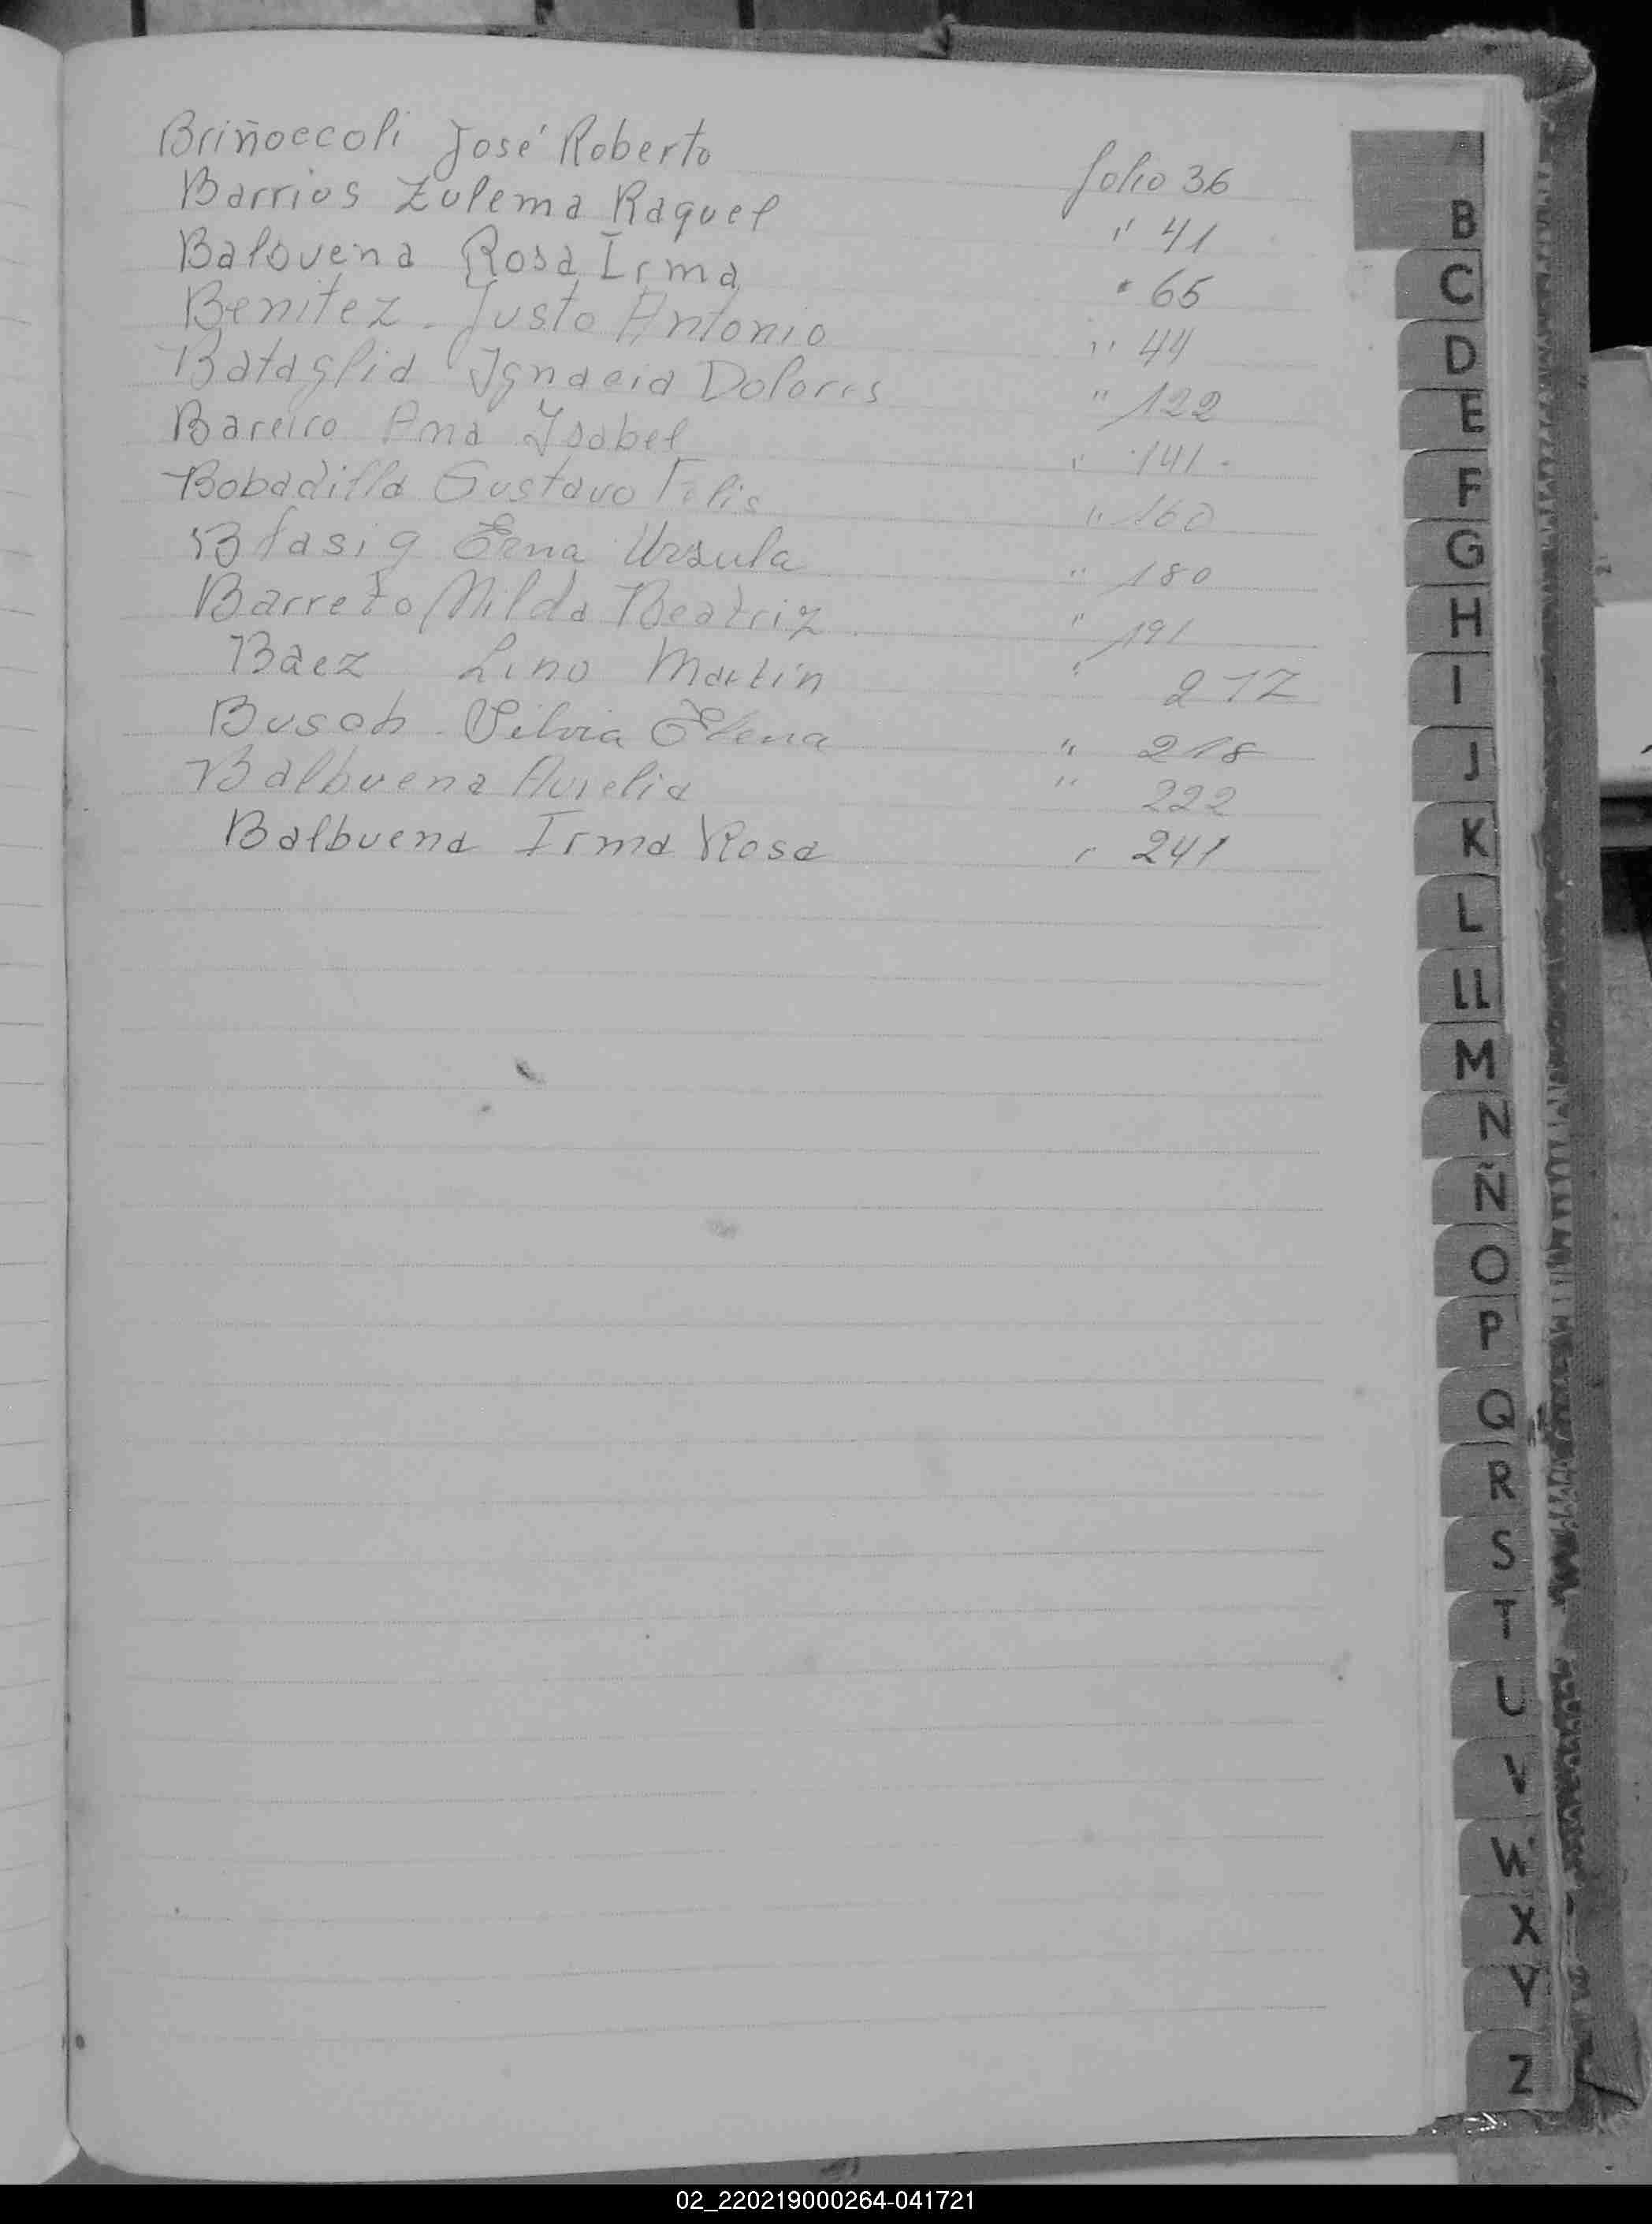 Briñoccoli José Roberto folio 36
Barrios Zulema Raquel " 41
Balbuena Rosa Irma " 65
Benitez - Justo Antonio " 44
Bataglia Ignacia Dolores " 122
Bareiro Ana Isabel " 141
Bobadilla Gustavo Felis " 160
Blasig Erna Ursula " 180
Barreto Nilda Beatriz " 191
Baez Lino Martin " 217
Busch - Silvia Elena " 218
Balbuena Aurelia " 222
Balbuena Irma Rosa " 241
B
C
D
E
F
G
H
I
J
K
L
LL
M
N
Ñ
O
P
Q
R
S
T
U
V
W
X
Y
Z
02_220219000264-041721